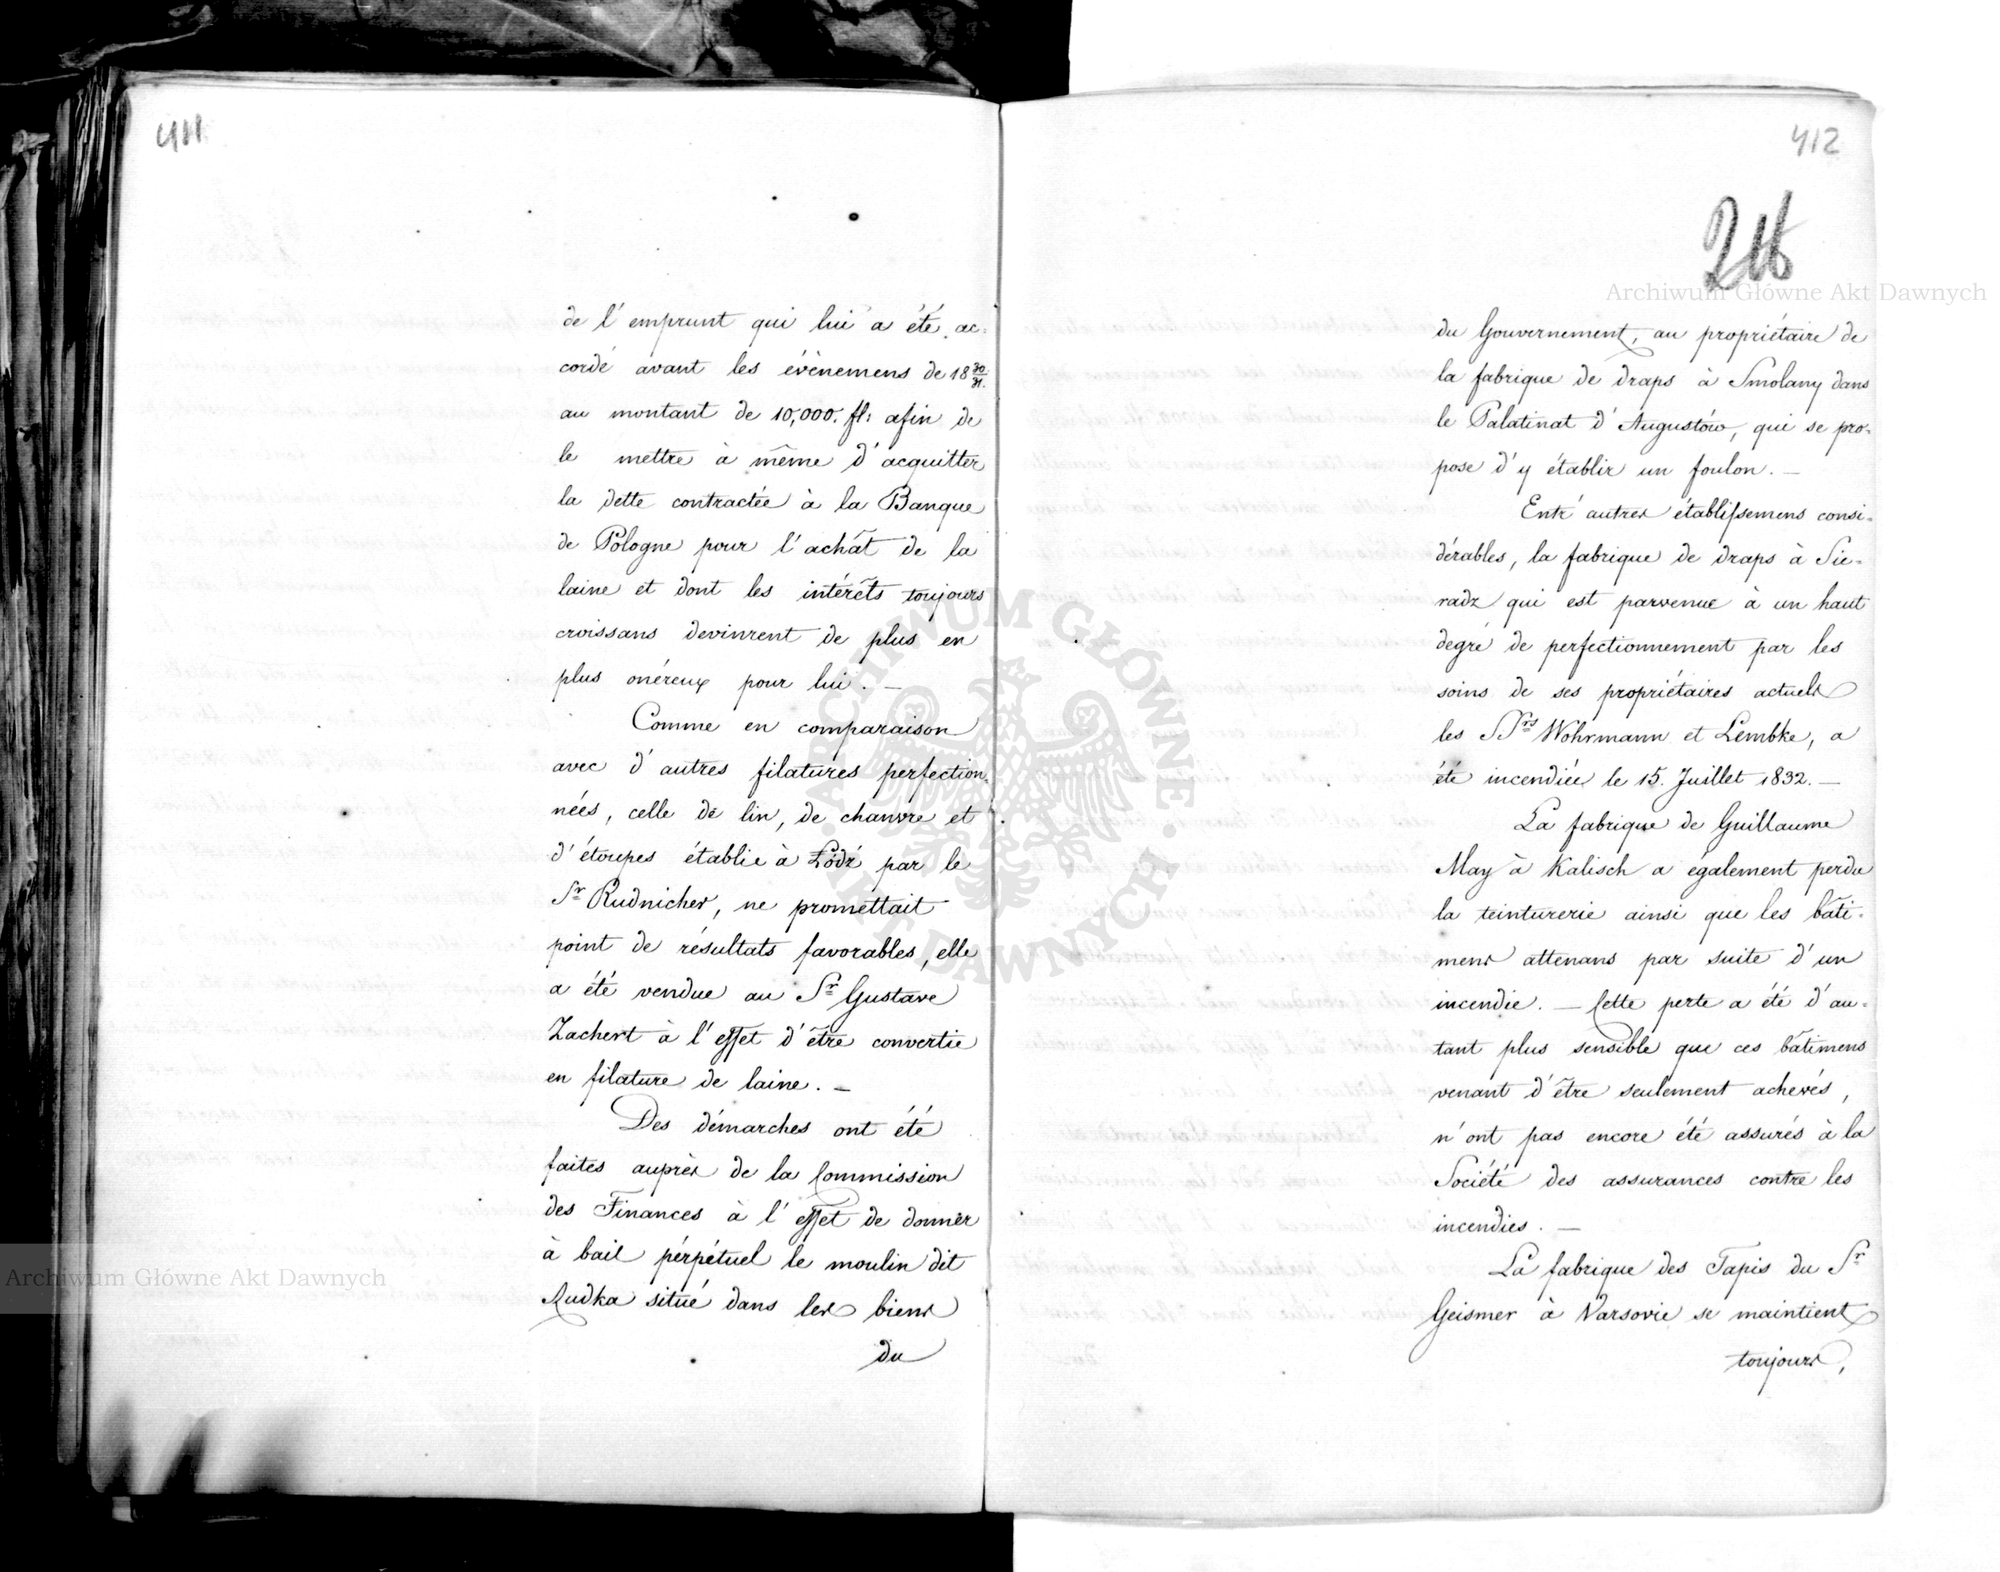 411
de l'emprunt qui lui a été ac-
cordé avant les évènemens de 18 30/31.
au montant de 10,000. fl: afin de
le mettre à même d'acquitter
la dette contractée à la Banque
de Pologne pour l'achât de la
laine et dont les intérêts toujours
croissans devinrent de plus en
plus onéreux pour lui. —
Comme en comparaison
avec d'autres filatures perfection-
nées, celle de lin, de chanvre et
d'étoupes établie à Łódź par le
Sr Rudnicher, ne promettait
point de résultats favorables, elle
a été vendue au Sr Gustave
Zachert à l'effet d'être convertie
en filature de laine. —
Des démarches ont été
faites auprès de la Commission
des Finances à l'effet de donner
à bail pérpétuel le moulin dit
Rudka situé dans les biens
du
412
du Gouvernement, au propriétaire de
la fabrique de draps à Smolany dans
le Palatinat d'Augustów, qui se pro-
pose d'y établir un foulon. —
Entr'autres établissemens consi-
dérables, la fabrique de draps à Sie-
radz qui est parvenue à un haut
degré de perfectionnement par les
soins de ses propriétaires actuels
les SSrs Wohrmann et Lembke, a
été incendiée le 15. Juillet 1832. —
La fabrique de Guillaume
May à Kalisch a également perdu
la teinturerie ainsi que les bâti-
mens attenans par suite d'un
incendie. — Cette perte a été d'au-
tant plus sensible que ces bâtimens
venant d'être seulement achevés,
n'ont pas encore été assurés à la
Société des assurances contre les
incendies. —
La fabrique des Tapis du Sr
Geismer à Varsovie se maintient
toujours,
Archiwum Główne Akt Dawnych
Archiwum Główne Akt Dawnych
ARCHIWUM GŁÓWNE · AKT DAWNYCH ·